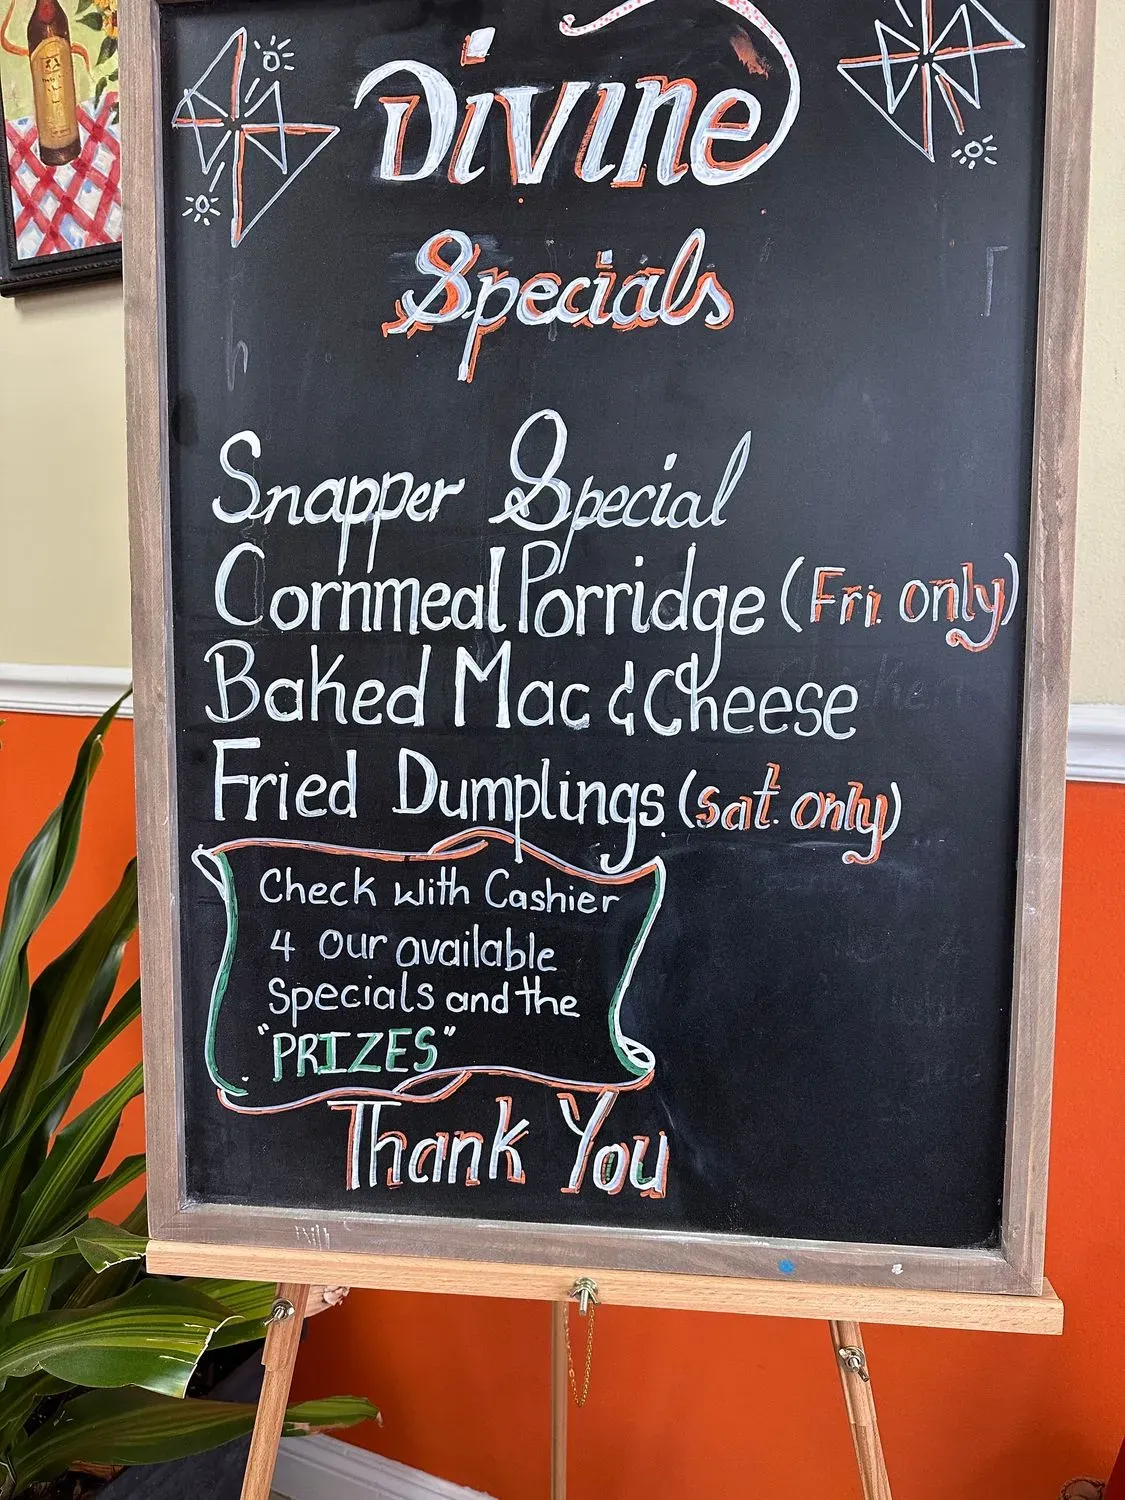 Divine
Specials
Snapper Special
Cornmeal Porridge (Fri. only)
Baked Mac & Cheese
Fried Dumplings (sat. only)
Check with Cashier
4 our available
Specials and the
"PRIZES"
Thank You